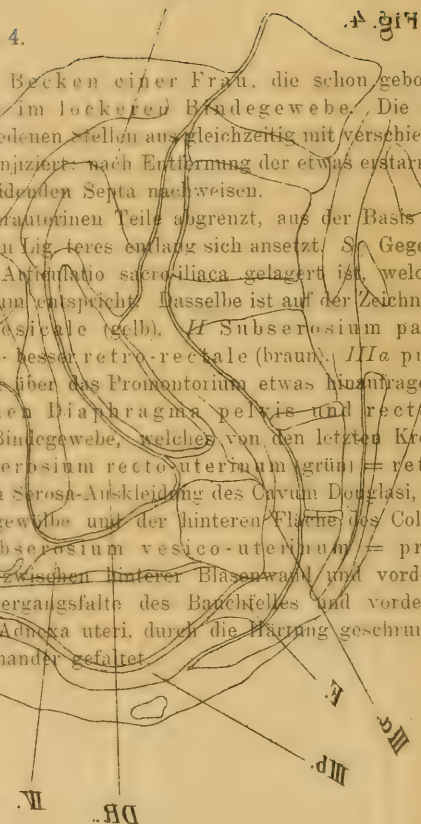 Fig. 4.
4.
Becken einer Frau, die schon gebo
im lockeren Bindegewebe. Die
edenen Stellen aus gleichzeitig mit verschie
njiziert: nach Entfernung der etwas erstarr
idenden Septa nachweisen.
rauterinen Teile abgrenzt, aus der Basis
n Lig. teres entlang sich ansetzt. S. Gege
Articulatio sacro-iliaca gelagert ist, welc
um entspricht. Dasselbe ist auf der Zeichn
esicale (gelb). II Subserosium pa
- besser retro-rectale (braun). IIIa pr
über das Promontorium etwas hinaufrage
en Diaphragma pelvis und recto
Bindegewebe, welches von den letzten Kre
erosium recto-uterinum (grün) = ret
n Serosa-Auskleidung des Cavum Douglasi,
gewölbe und der hinteren Fläche des Col
bserosium vesico-uterinum = pr
zwischen hinterer Blasenwand und vord
ergangsfalte des Bauchfelles und vorde
Adnexa uteri, durch die Härtung geschrum
nander gefaltet.
E.
IIIa.
IIIb.
IV.
DR.